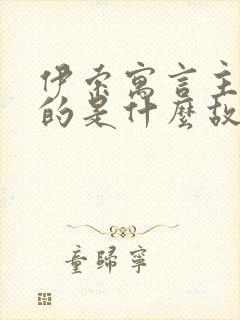 伊索寓言主
的是什麼故
童歸寧